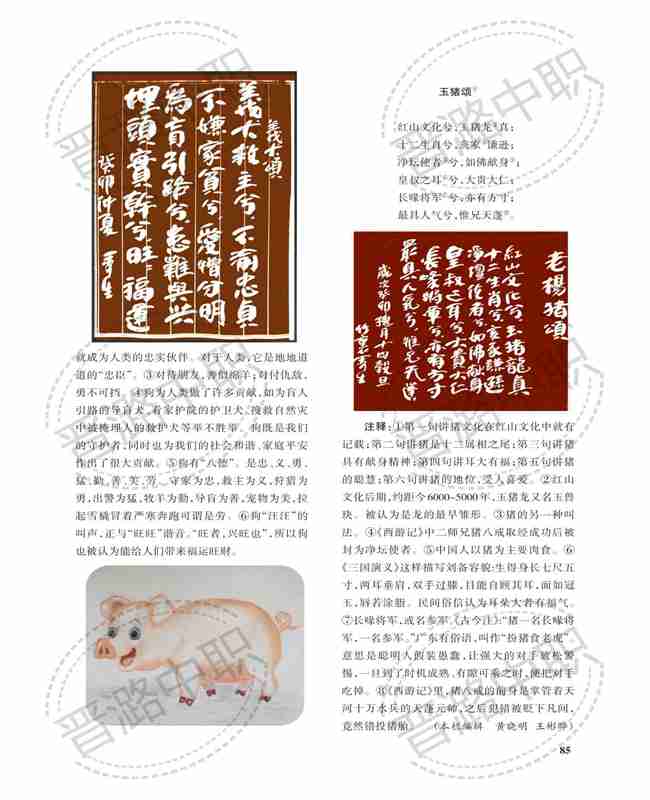 義犬頌
義犬救主兮不渝忠貞
不嫌家貧兮愛憎分明
為盲引路兮患難與共
埋頭實幹兮旺福運
癸卯仲夏
就成为人类的忠实伙伴。对于人类,它是地地道
道的“忠臣”。③对待朋友,善似绵羊;对付仇敌,
勇不可挡。④狗为人类做了许多贡献,如为盲人
引路的导盲犬、看家护院的护卫犬、搜救自然灾
中被掩埋人的救护犬等举不胜举。狗既是我们
的守护者,同时也为我们的社会和谐、家庭平安
作出了很大贡献。⑤狗有“八德”。是忠、义、勇、
猛、勤、善、美、劳。守家为忠,救主为义,狩猎为
勇,出警为猛,牧羊为勤,导盲为善,宠物为美,拉
起雪橇冒着严寒奔跑可谓是劳。⑥狗“汪汪”的
叫声,正与“旺旺”谐音。“旺者,兴旺也”,所以狗
也被认为能给人们带来福运旺财。
玉猪颂
红山文化兮,玉猪龙②真;
十二生肖兮,亥家③谦逊;
净坛使者④兮,如佛献身⑤;
皇叔之耳⑥兮,大贵大仁;
长喙将军⑦兮,亦有方寸;
最具人气兮,惟兄天蓬⑧。
老楊猪頌
紅山文化兮玉猪龍真
十二生肖兮亥家謙遜
净壇使者兮如佛献身
皇叔之耳兮大貴大仁
長喙將軍兮亦有方寸
最具人氣兮惟兄天蓬
歲次癸卯
注释:①第一句讲猪文化在红山文化中就有
记载;第二句讲猪是十二属相之尾;第三句讲猪
具有献身精神;第四句讲耳大有福;第五句讲猪
的聪慧;第六句讲猪的地位,受人喜爱。②红山
文化后期,约距今6000~5000年,玉猪龙又名玉兽
玦。被认为是龙的最早雏形。③猪的另一种叫
法。④《西游记》中二师兄猪八戒取经成功后被
封为净坛使者。⑤中国人以猪为主要肉食。⑥
《三国演义》这样描写刘备容貌:生得身长七尺五
寸,两耳垂肩,双手过膝,目能自顾其耳,面如冠
玉,唇若涂脂。民间俗信认为耳朵大者有福气。
⑦长喙将军,或名参军。《古今注》:“猪一名长喙将
军,一名参军。”广东有俗语,叫作“扮猪食老虎”,
意思是聪明人假装愚蠢,让强大的对手放松警
惕,一旦到了时机成熟,有隙可乘之时,便把对手
吃掉。⑧《西游记》里,猪八戒的前身是掌管着天
河十万水兵的天蓬元帅,之后犯错被贬下凡间,
竟然错投猪胎。(本栏编辑 黄晓明 王彬晔)
85
晋潞中职